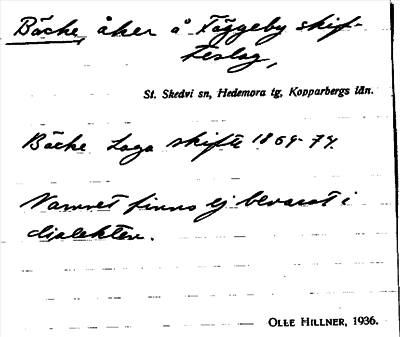 Bäcke, åker å Fäggeby skif-
teslag,
St. Skedvi sn, Hedemora tg, Kopparbergs län.
Bäcke Laga skifte 1869-74.
Namnet finns ej bevarat i
dialekten.
OLLE HILLNER, 1936.